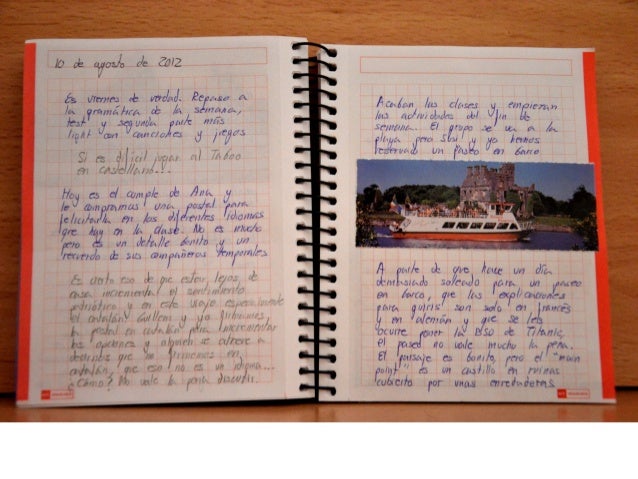 10 de agosto de 2012
Es viernes de verdad. Repaso a
la gramática de la semana,
test y segunda parte más
light con canciones y juegos
Si es difícil jugar al Taboo
en castellano...
Hoy es el cumple de Ana y
le compramos una postal para
felicitarla en los diferentes idiomas
que hay en la clase. No es mucho
pero es un detalle bonito y un
recuerdo de sus compañeros temporales
Es cierto eso de que estar lejos de
casa incrementa el sentimiento
patriótico y en este viaje, especialmente
el catalán. Guillem y yo firmamos
la postal en catalán para incrementar
las opciones y alguien se atreve a
decirnos que no firmemos en
catalán, que eso no es un idioma...
¿Cómo? No vale la pena discutir.
Acaban las clases y empiezan
las actividades del fin de
semana. El grupo se va a la
playa pero y yo hemos
reservado un paseo en barco
A parte de que hace un día
demasiado soleado para un paseo
en barco, que las explicaciones
para guiris son solo en francés
y en alemán y que se les
ocurre poner la BSO de Titanic,
el paseo no vale mucho la pena.
El paisaje es bonito pero el "main
point" es un castillo en ruinas
cubierto por unas enredaderas